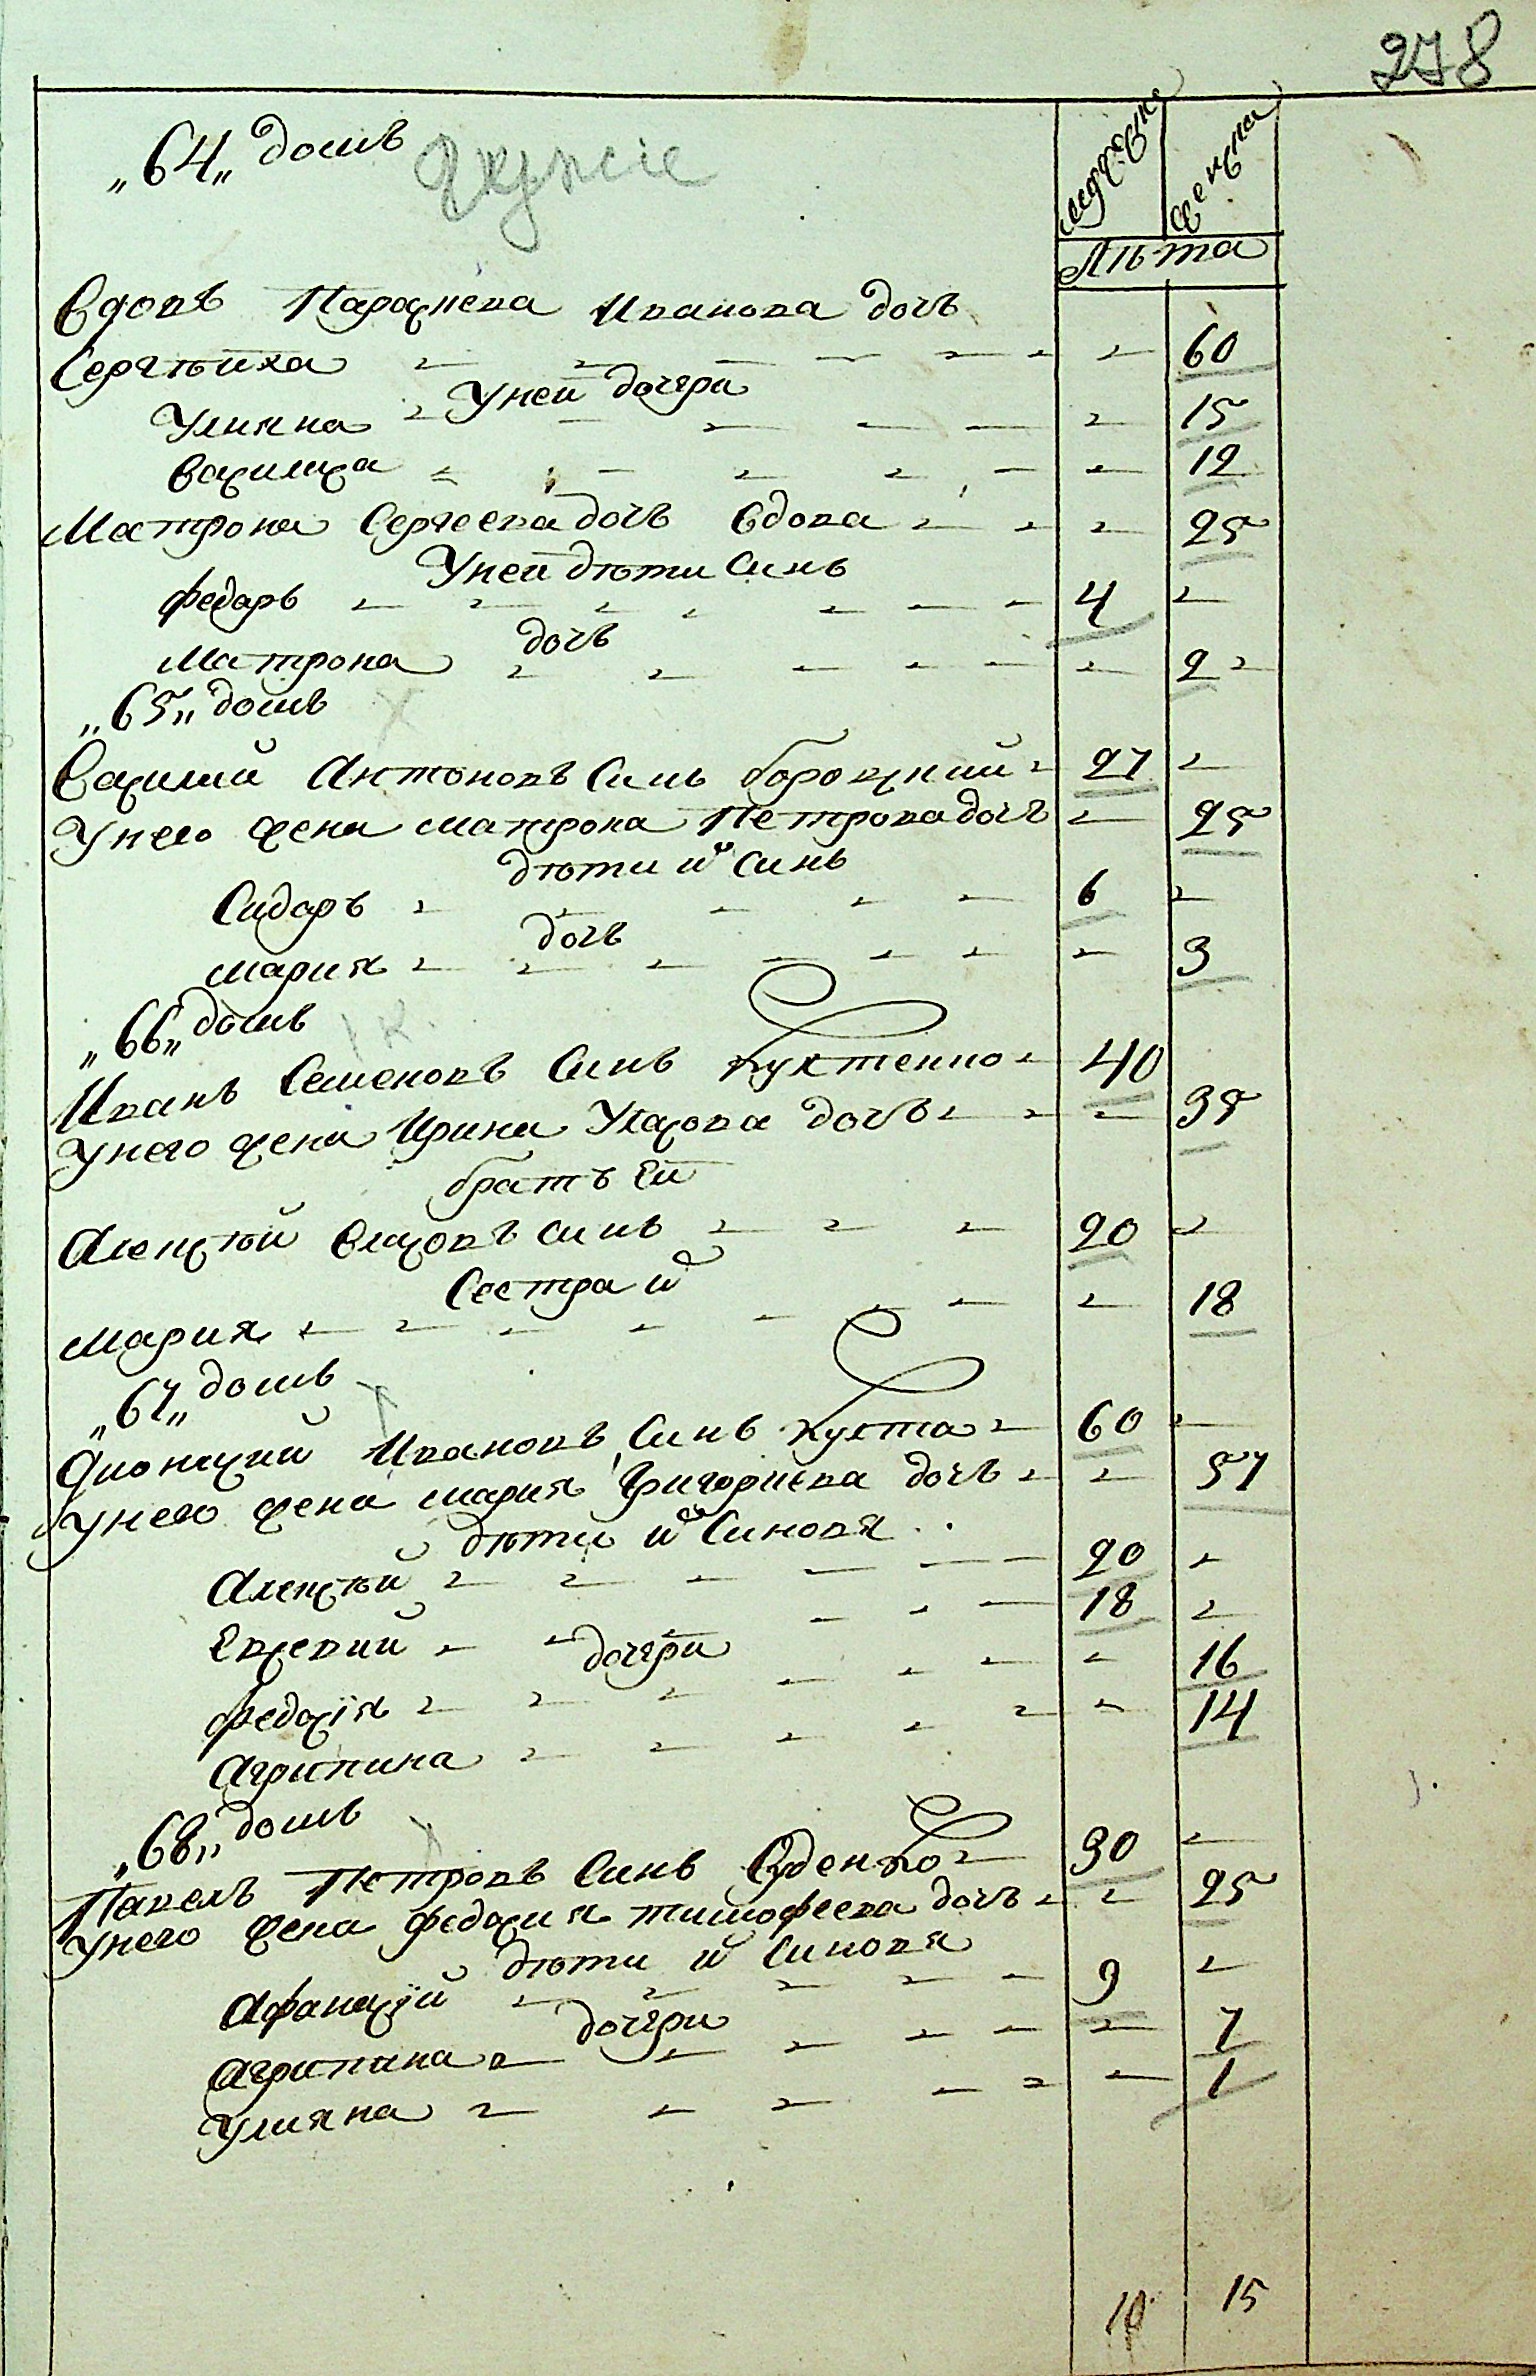 278
„64„ домъ
мужеска женска
Лѣта
Вдова Параскева Иванова дочь
Сергѣиха 60
У ней дочери
Улияна 15
Василиса 12
Матрона Сергеева дочь вдова 25
У ней дѣти синъ
Федаръ 4
дочь
Матрона 2
„65„ домъ
Василий Антоновъ синъ боровский 27
У него жена Матрона Петрова дочь 25
дѣти их синъ
Сидаръ 6
дочь
Мария 3
„66„ домъ
Иванъ Семеновъ синъ кухтенко 40
У него жена Ирина Уласова дочь 35
братъ ей
Алексѣй Власовъ синъ 20
Сестра их
Мария 18
„67„ домъ
Дионисий Ивановъ синъ кухта 60
У него жена Мария Григориева дочь 57
дѣти их синовя
Алексѣй 20
Евсевий 18
дочери
Федосія 16
Агрипина 14
„68„ домъ
Павелъ Петровъ синъ Руденко 30
У него жена Федосия тимофеева дочь 25
дѣти их синовя
Афанасій 9
дочери
Агрипина 7
Улияна 1
10 15